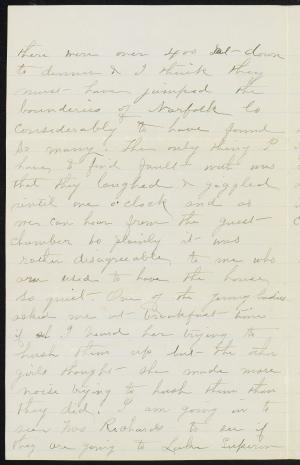 there were over 400 sat down
to dinner & I think they
must have jumped the
bounderies of Norfolk Co
considerably to have found
so many. The only thing I
have to find fault with was
that they laughed & gaggled
until one o'clock and as
we can hear from the guest
chamber so plainly it was
rather disagreeable to me who
are used to have the house
so quiet - One of the young ladies
asked me at breakfast time
if I heard her trying to
hush them up but the other
girls thought she made more
noise trying to hush them than
they did. I am going in to
see Mrs Richards to see if
they are going to Lake Superior